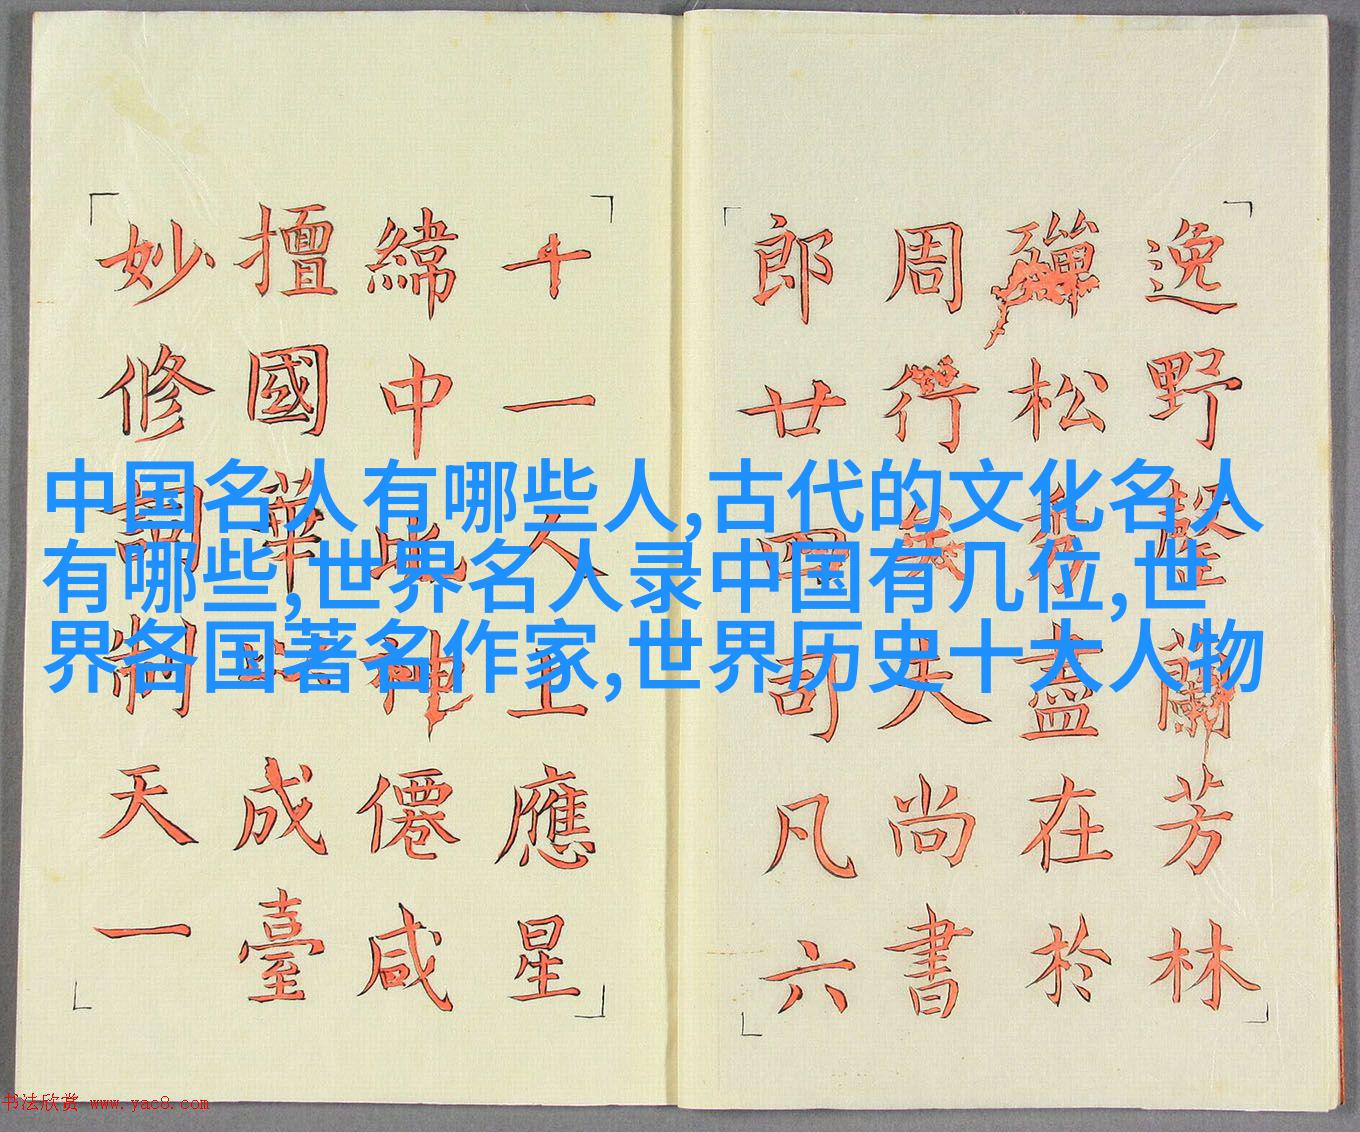 逸野蘭芳林
殫松盡在於
周行夫尚書
郎廿四司凡六
十一人上應星
緯中此神僊咸
擅國華以成臺
妙修制天一
中国名人有哪些人,古代的文化名人
有哪些,世界名人录中国有几位,世
界各国著名作家,世界历史十大人物
书法欣赏 www.yac8.com